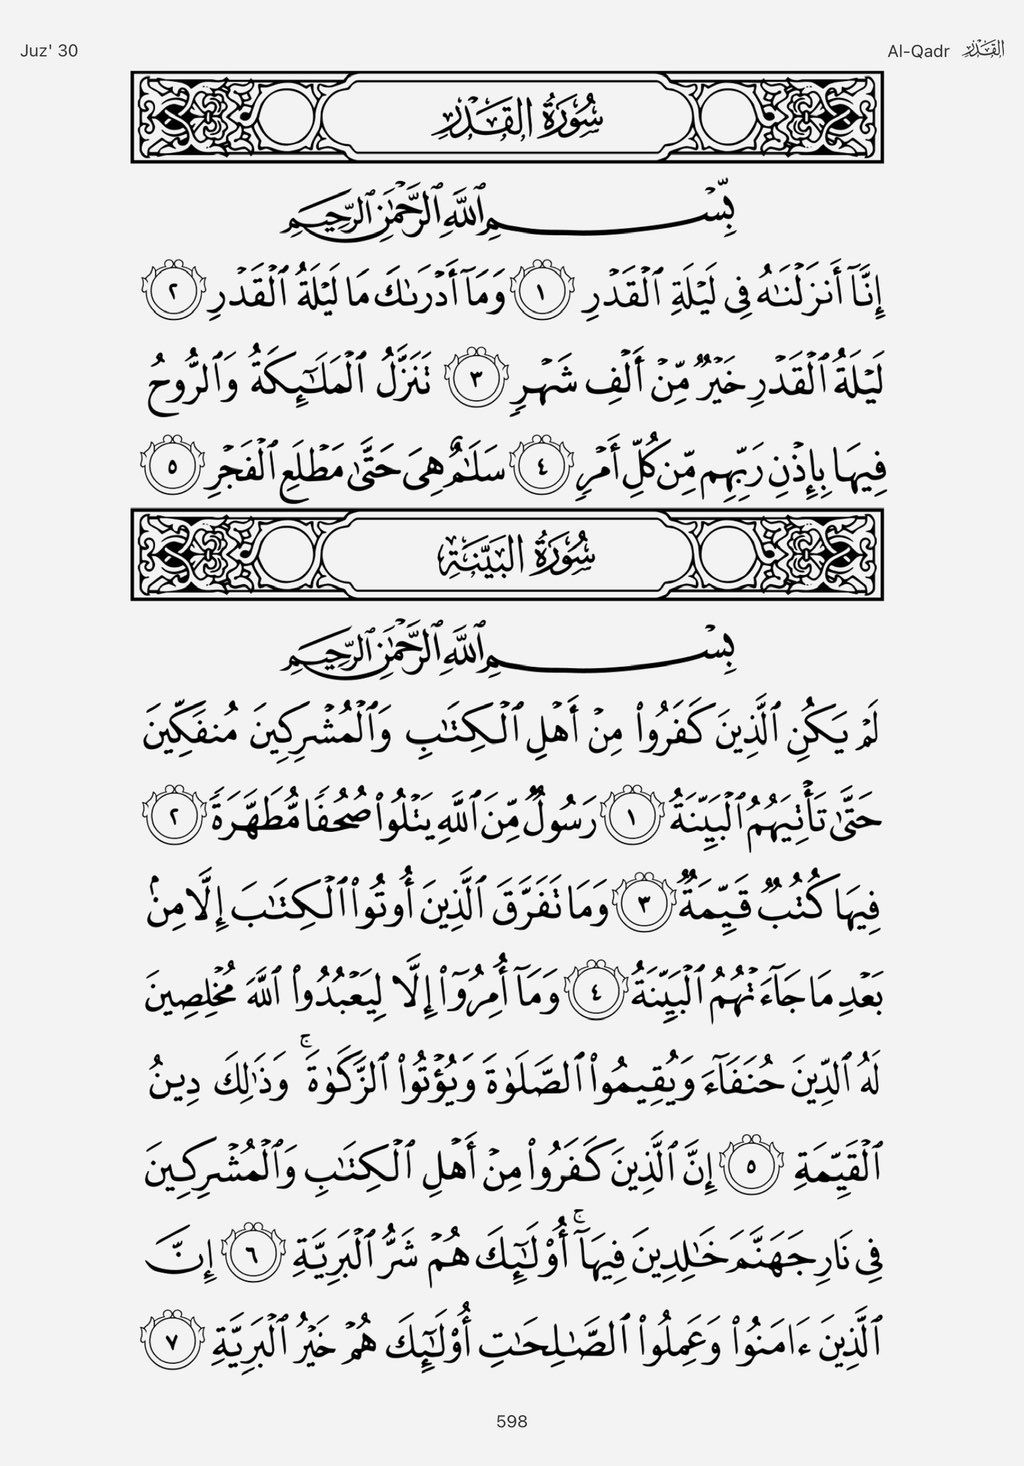 Juz' 30
Al-Qadr القدر
سُورَةُ القَدْرِ
بِّسْمِ ٱللَّهِ ٱلرَّحْمَٰنِ ٱلرَّحِيمِ
إِنَّآ أَنزَلْنَٰهُ فِى لَيْلَةِ ٱلْقَدْرِ ١ وَمَآ أَدْرَىٰكَ مَا لَيْلَةُ ٱلْقَدْرِ ٢
لَيْلَةُ ٱلْقَدْرِ خَيْرٌ مِّنْ أَلْفِ شَهْرٍ ٣ تَنَزَّلُ ٱلْمَلَٰٓئِكَةُ وَٱلرُّوحُ
فِيهَا بِإِذْنِ رَبِّهِم مِّن كُلِّ أَمْرٍ ٤ سَلَٰمٌ هِىَ حَتَّىٰ مَطْلَعِ ٱلْفَجْرِ ٥
سُورَةُ البَيِّنَةِ
بِسْمِ ٱللَّهِ ٱلرَّحْمَٰنِ ٱلرَّحِيمِ
لَمْ يَكُنِ ٱلَّذِينَ كَفَرُوا۟ مِنْ أَهْلِ ٱلْكِتَٰبِ وَٱلْمُشْرِكِينَ مُنفَكِّينَ
حَتَّىٰ تَأْتِيَهُمُ ٱلْبَيِّنَةُ ١ رَسُولٌ مِّنَ ٱللَّهِ يَتْلُوا۟ صُحُفًا مُّطَهَّرَةً ٢
فِيهَا كُتُبٌ قَيِّمَةٌ ٣ وَمَا تَفَرَّقَ ٱلَّذِينَ أُوتُوا۟ ٱلْكِتَٰبَ إِلَّا مِنۢ
بَعْدِ مَا جَآءَتْهُمُ ٱلْبَيِّنَةُ ٤ وَمَآ أُمِرُوٓا۟ إِلَّا لِيَعْبُدُوا۟ ٱللَّهَ مُخْلِصِينَ
لَهُ ٱلدِّينَ حُنَفَآءَ وَيُقِيمُوا۟ ٱلصَّلَوٰةَ وَيُؤْتُوا۟ ٱلزَّكَوٰةَ ۚ وَذَٰلِكَ دِينُ
ٱلْقَيِّمَةِ ٥ إِنَّ ٱلَّذِينَ كَفَرُوا۟ مِنْ أَهْلِ ٱلْكِتَٰبِ وَٱلْمُشْرِكِينَ
فِى نَارِ جَهَنَّمَ خَٰلِدِينَ فِيهَآ ۚ أُو۟لَٰٓئِكَ هُمْ شَرُّ ٱلْبَرِيَّةِ ٦ إِنَّ
ٱلَّذِينَ ءَامَنُوا۟ وَعَمِلُوا۟ ٱلصَّٰلِحَٰتِ أُو۟لَٰٓئِكَ هُمْ خَيْرُ ٱلْبَرِيَّةِ ٧
598